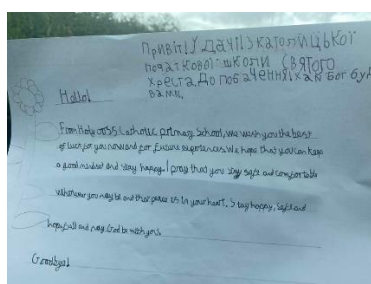 Привіт! Удачі з католицької
початкової школи Святого
Хреста. До побачення і хай Бог буде
вами.
Hello!
From Holy cross Catholic primary School, we wish you the best
of luck for you norward for Euture experiences. We hope that you can keep
a good mindset and stay happy. I pray that you stay safe and comfortable
wherever you may be and that peace is in your heart. Stay happy, safe and
hopefull and may God be with you.
Goodbye!